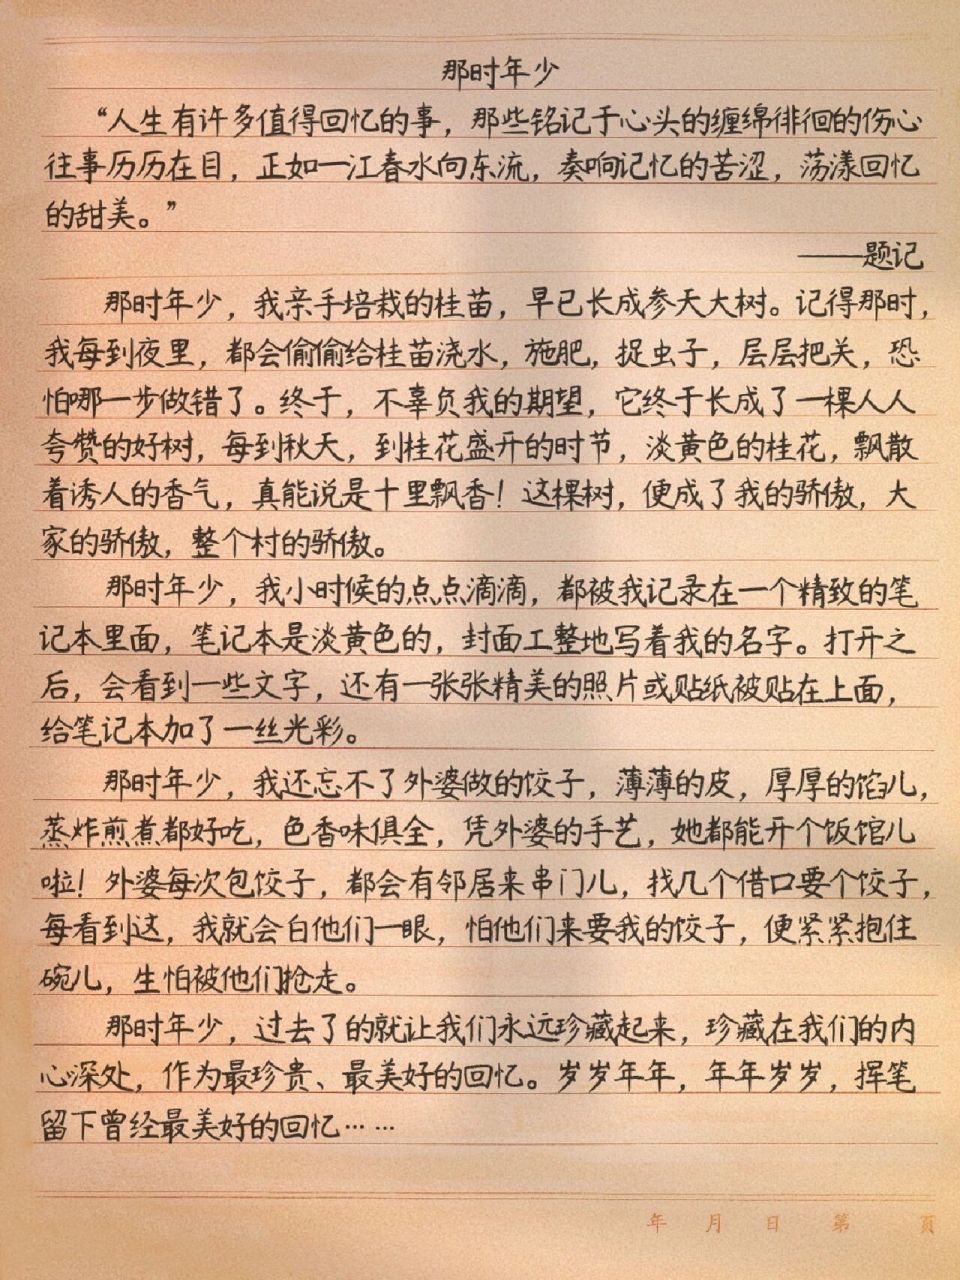 那时年少
“人生有许多值得回忆的事，那些铭记于心头的缠绵徘徊的伤心
往事历历在目，正如一江春水向东流，奏响记忆的苦涩，荡漾回忆
的甜美。”
——题记
那时年少，我亲手培栽的桂苗，早已长成参天大树。记得那时，
我每到夜里，都会偷偷给桂苗浇水，施肥，捉虫子，层层把关，恐
怕哪一步做错了。终于，不辜负我的期望，它终于长成了一棵人人
夸赞的好树，每到秋天，到桂花盛开的时节，淡黄色的桂花，飘散
着诱人的香气，真能说是十里飘香！这棵树，便成了我的骄傲，大
家的骄傲，整个村的骄傲。
那时年少，我小时候的点点滴滴，都被我记录在一个精致的笔
记本里面，笔记本是淡黄色的，封面工整地写着我的名字。打开之
后，会看到一些文字，还有一张张精美的照片或贴纸被贴在上面，
给笔记本加了一丝光彩。
那时年少，我还忘不了外婆做的饺子，薄薄的皮，厚厚的馅儿，
蒸炸煎煮都好吃，色香味俱全，凭外婆的手艺，她都能开个饭馆儿
啦！外婆每次包饺子，都会有邻居来串门儿，找几个借口要个饺子，
每看到这，我就会白他们一眼，怕他们来要我的饺子，便紧紧抱住
碗儿，生怕被他们抢走。
那时年少，过去了的就让我们永远珍藏起来，珍藏在我们的内
心深处，作为最珍贵、最美好的回忆。岁岁年年，年年岁岁，挥笔
留下曾经最美好的回忆……
年 月 日 第 頁